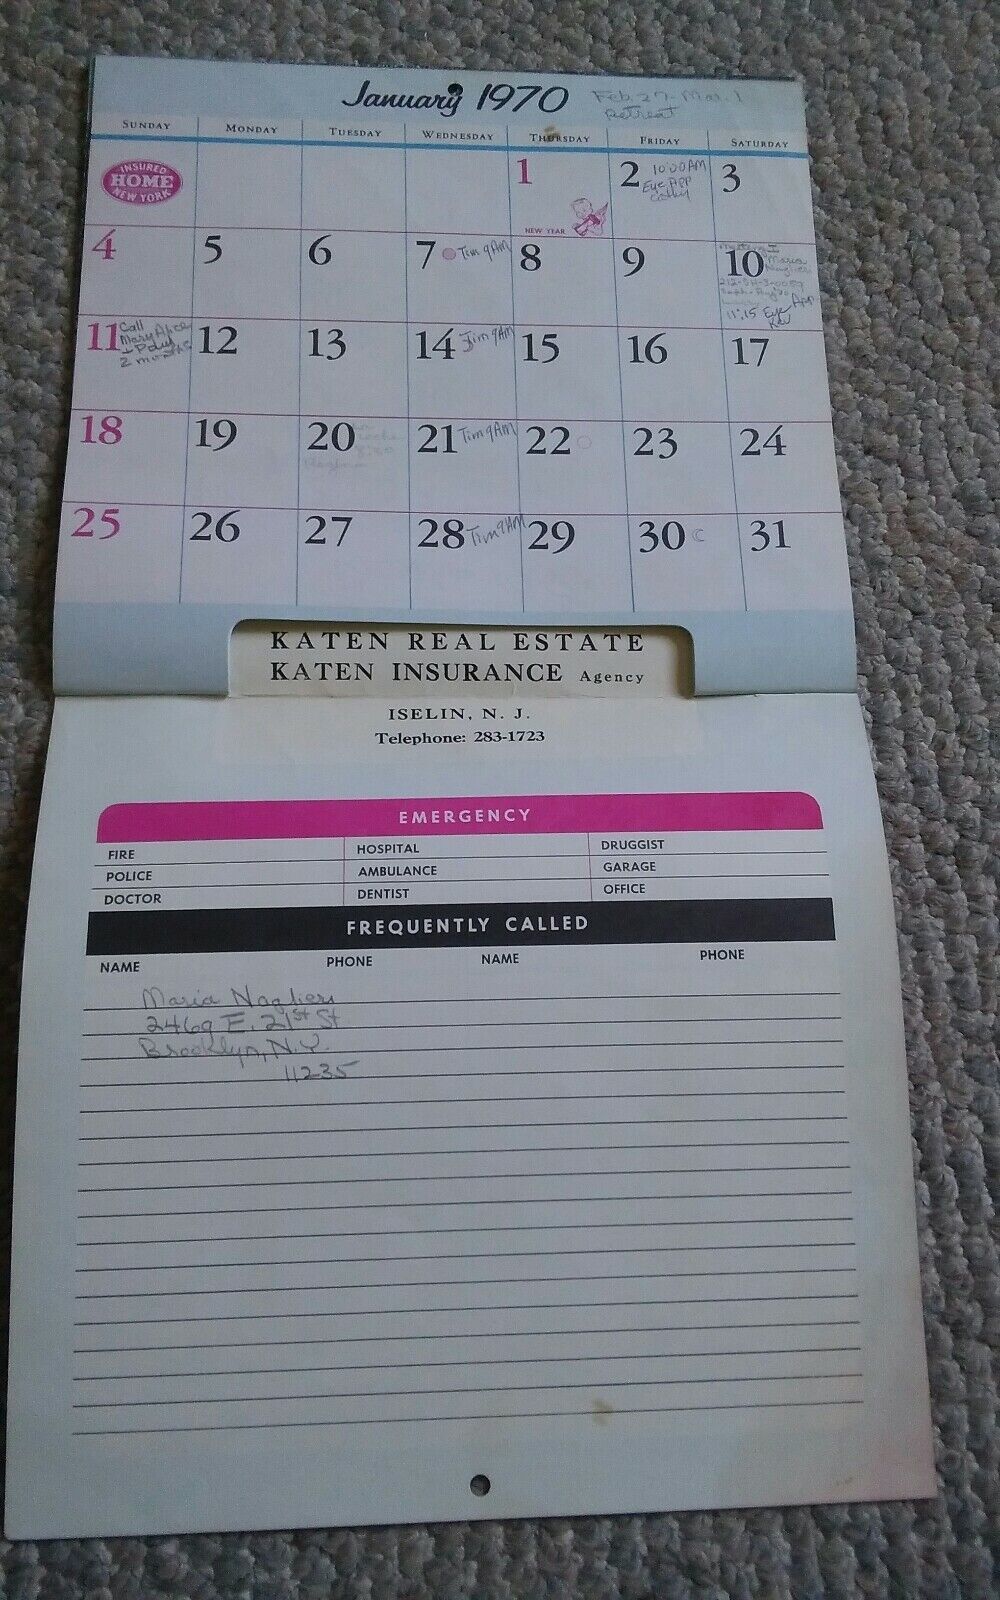 January 1970 Feb. 27-Mar. 1
Retreat
SUNDAY MONDAY TUESDAY WEDNESDAY THURSDAY FRIDAY SATURDAY
INSURED
HOME
NEW YORK
1
NEW YEAR
2 10:00 AM
Eye App
Cathy
3
4 5 6 7 Tim 9AM 8 9 10
Maria
11:15 Eye App
11 Call
Mary Alice
2 months
12 13 14 Tim 9AM 15 16 17
18 19 20 21 Tim 9AM 22 23 24
25 26 27 28 Tim 9AM 29 30 31
KATEN REAL ESTATE
KATEN INSURANCE Agency
ISELIN, N. J.
Telephone: 283-1723
EMERGENCY
FIRE HOSPITAL DRUGGIST
POLICE AMBULANCE GARAGE
DOCTOR DENTIST OFFICE
FREQUENTLY CALLED
NAME PHONE NAME PHONE
Maria Naglieri
2469 E. 21st St
Brooklyn, N.Y.
11235